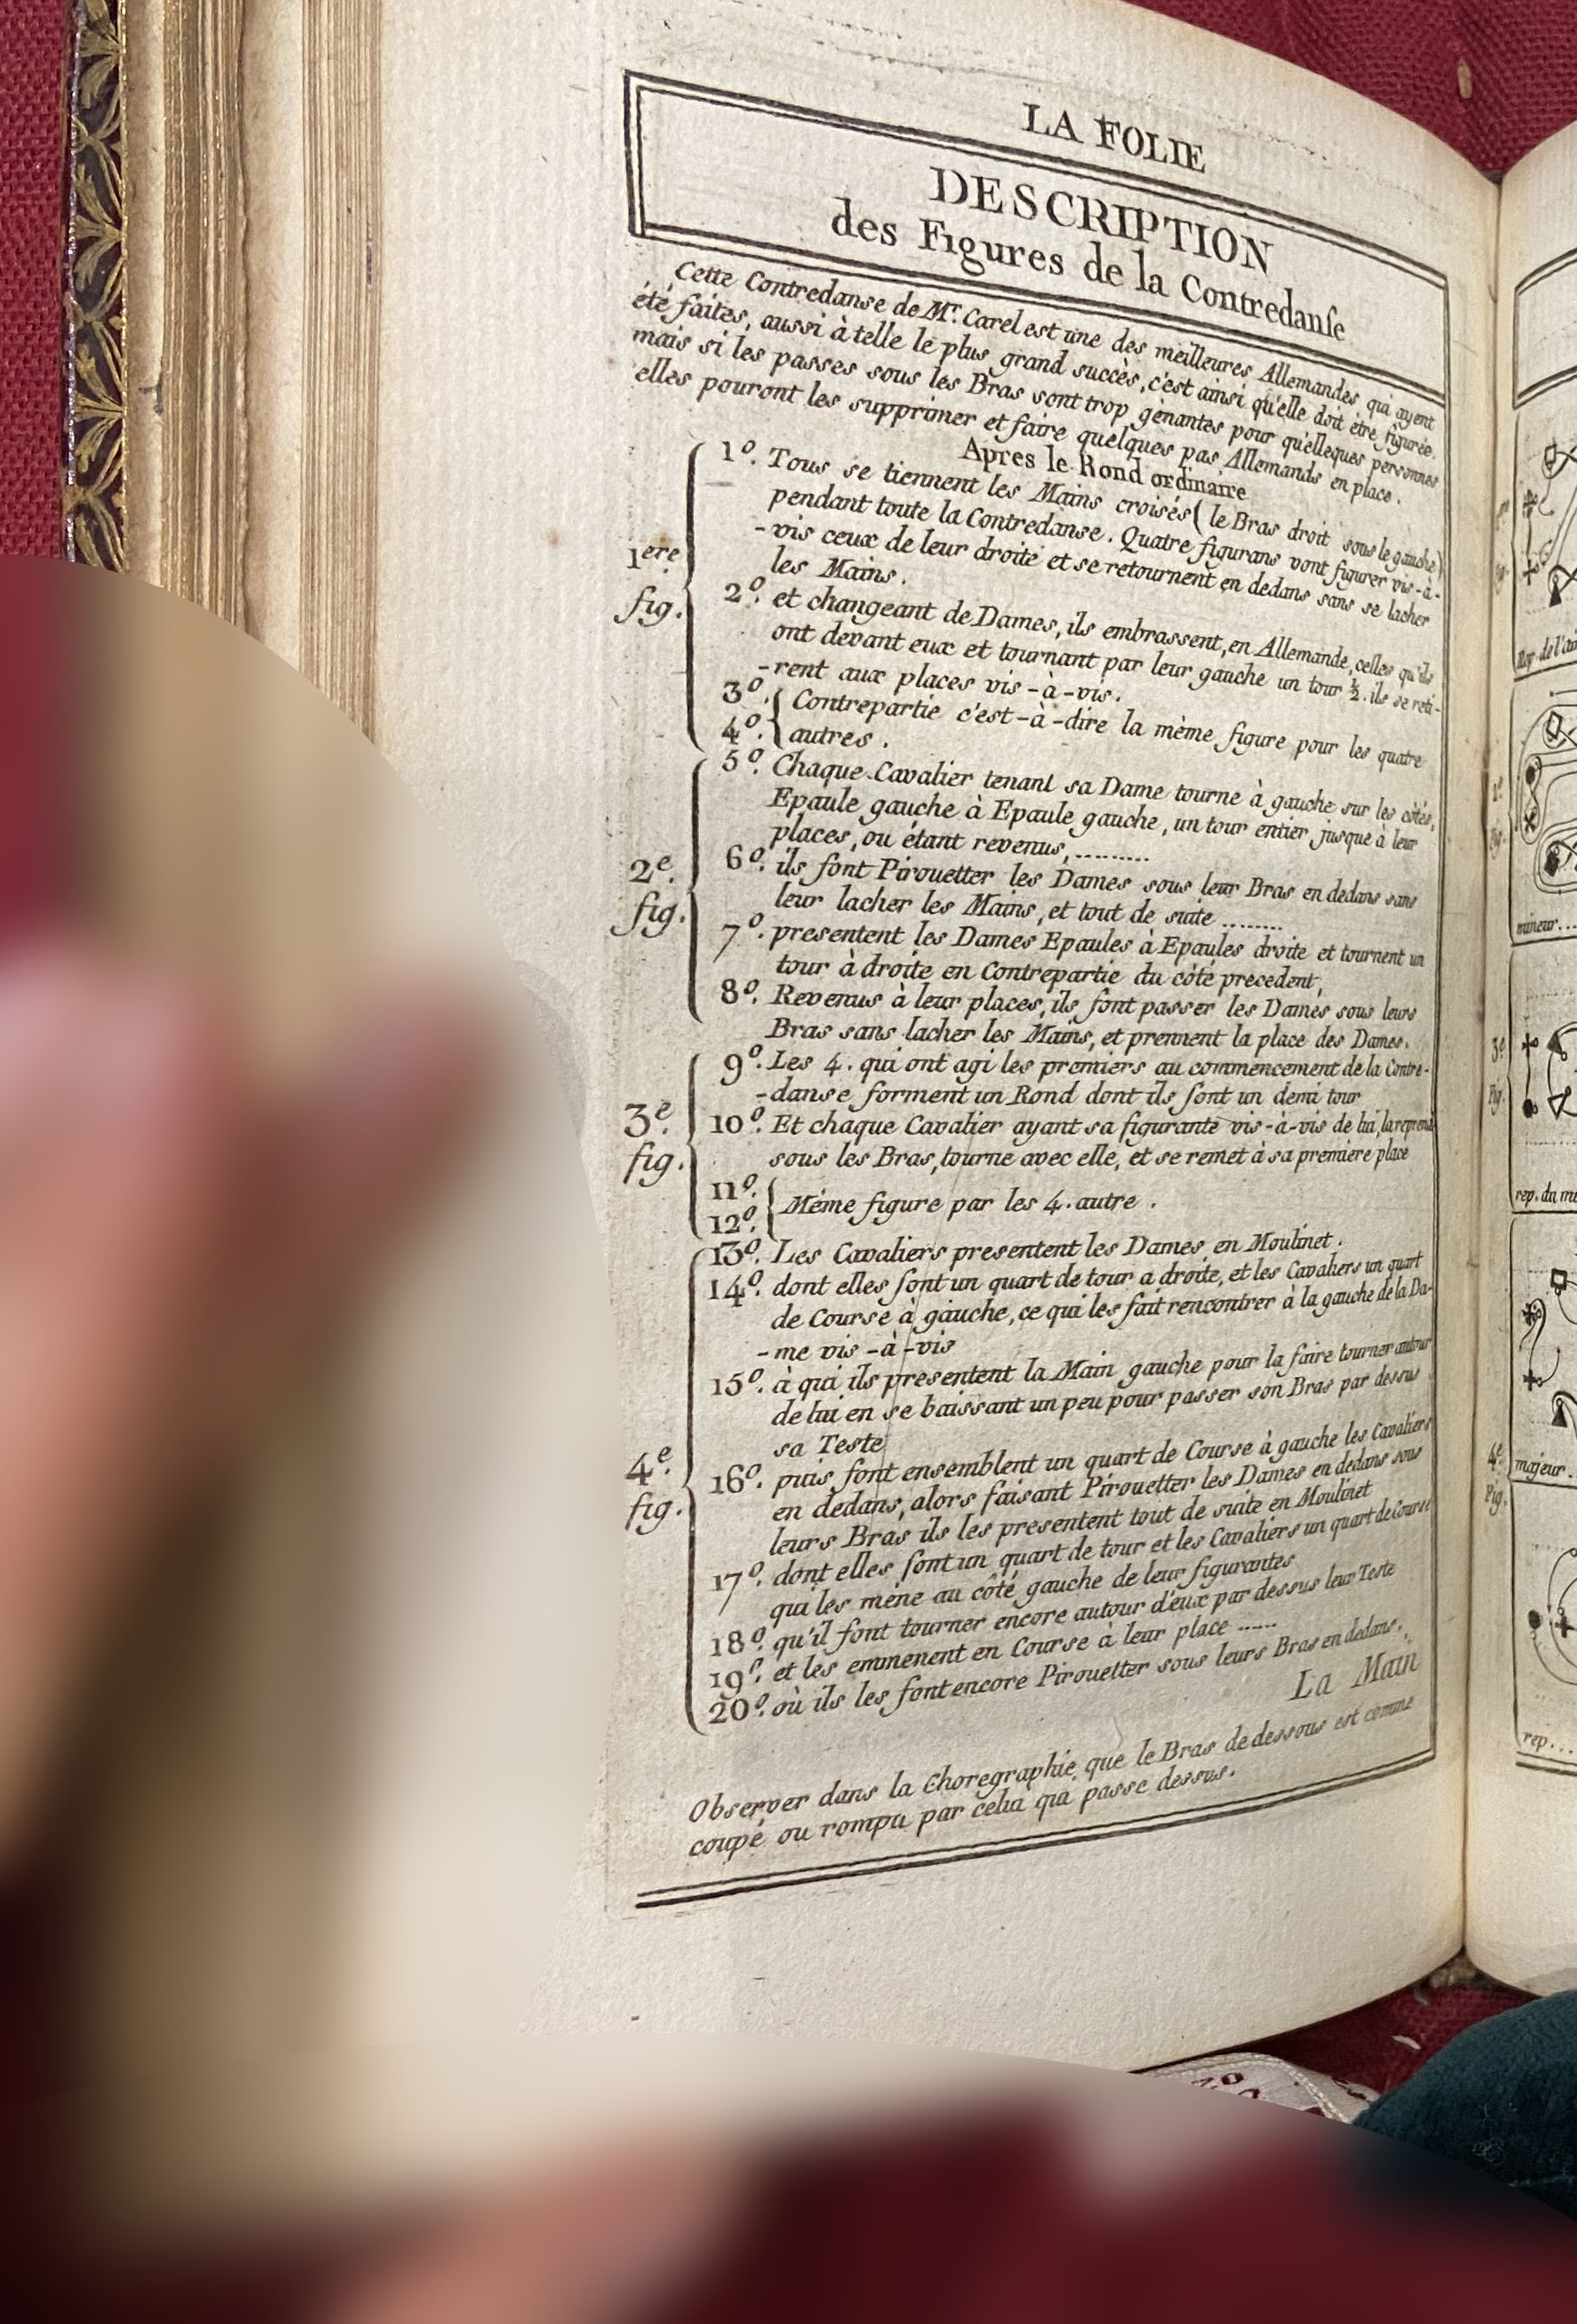 LA FOLIE
DESCRIPTION
des Figures de la Contredanſe
Cette Contredanse de Mr. Carel est une des meilleures Allemandes qui ayent
été faites, aussi à telle le plus grand succès, c'est ainsi qu'elle doit être figurée.
mais si les passes sous les Bras sont trop gènantes pour qu'elleques personnes
elles pouront les supprimer et faire quelques pas Allemands en place.
Apres le Rond ordinaire
1ere fig.
1º. Tous se tiennent les Mains croisés (le Bras droit sous le gauche)
pendant toute la Contredanse. Quatre figurans vont figurer vis-à-
-vis ceux de leur droite et se retournent en dedans sans se lacher
les Mains.
2º. et changeant de Dames, ils embrassent, en Allemande, celles qu'ils
ont devant eux et tournant par leur gauche un tour ½. ils se reti-
-rent aux places vis-à-vis.
3º. Contrepartie c'est-à-dire la mème figure pour les quatre
4º. autres.
2e. fig.
5º. Chaque Cavalier tenant sa Dame tourne à gauche sur les côtés,
Epaule gauche à Epaule gauche, un tour entier, jusque à leur
places, ou étant revenus, .........
6º. ils font Pirouetter les Dames sous leur Bras en dedans sans
leur lacher les Mains, et tout de suite ........
7º. presentent les Dames Epaules à Epaules droite et tournent un
tour à droite en Contrepartie du côté precedent,
8º. Revenus à leur places, ils font passer les Dames sous leurs
Bras sans lacher les Mains, et prennent la place des Dames.
3e. fig.
9º. Les 4. qui ont agi les premiers au commencement de la Contre-
-danse forment un Rond dont ils font un demi tour
10º. Et chaque Cavalier ayant sa figurante vis-à-vis de lui, la reprend
sous les Bras, tourne avec elle, et se remet à sa premiere place
11º.
12º. Même figure par les 4. autre.
4e. fig.
13º. Les Cavaliers presentent les Dames en Moulinet.
14º. dont elles font un quart de tour a droite, et les Cavaliers un quart
de Course à gauche, ce qui les fait rencontrer à la gauche de la Da-
-me vis-à-vis
15º. à qui ils presentent la Main gauche pour la faire tourner autour
de lui en se baissant un peu pour passer son Bras par dessus
sa Teste
16º. puis font ensemblent un quart de Course à gauche les Cavaliers
en dedans, alors faisant Pirouetter les Dames en dedans sous
leurs Bras ils les presentent tout de suite en Moulinet
17º. dont elles font un quart de tour et les Cavaliers un quart de Course
qui les mène au côté gauche de leur figurantes
18º. qu'il font tourner encore autour d'eux par dessus leur Teste
19º. et les emmenent en Course à leur place ......
20º. où ils les font encore Pirouetter sous leurs Bras en dedans.
La Main
Observer dans la Choregraphie que le Bras de dessous est comme
coupé ou rompu par celui qui passe dessus.
mineur...
majeur.
rep...